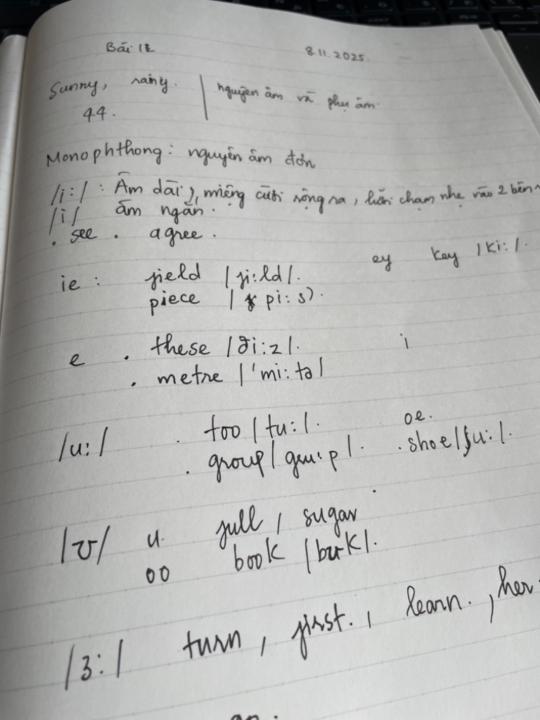 Bài 12 8.11.2025.
Sunny, rainy. | nguyên âm và phụ âm
44.
Monophthong: nguyên âm đơn
/i:/ : Âm dài, miệng cười rộng ra, lưỡi chạm nhẹ vào 2 bên
/i/ âm ngắn.
. see . agree.
ie : field /fi:ld/. ey key /ki:/.
piece / pi:s).
e . these /ði:z/. i
. metre /'mi:tə/
/u:/ . too /tu:/. oe.
. group /gru:p/. . shoe /ʃu:/.
/ʊ/ u full, sugar
oo book /bʊk/.
/ɜ:/ turn, first., learn., her